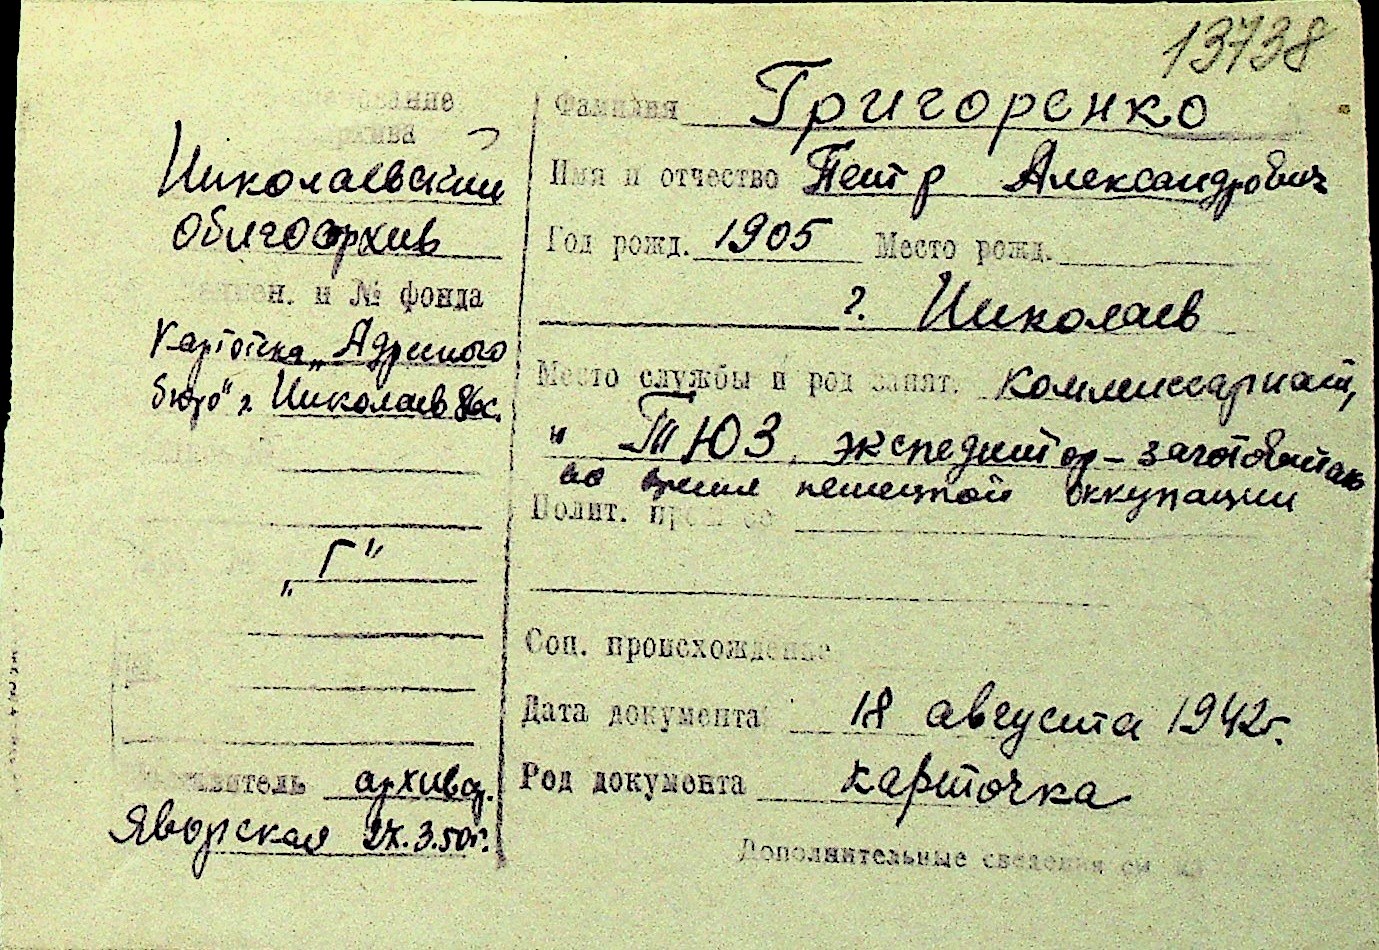 13738
Николаевский
облгосархив
н. и № фонда
Картотека „Адресного
бюро" г. Николаев
„Г"
архивар.
Яворская 27.3.50г.
Фамилия Григоренко
Имя и отчество Петр Александрович
Год рожд. 1905 Место рожд.
г. Николаев
Место службы и род занят. Коммисариат,
" ТЮЗ, экспедитор-заготовитель
во время немецкой оккупации
Полит.
Соц. происхождение
Дата документа 18 августа 1942г.
Род документа карточка
Дополнительные сведения см